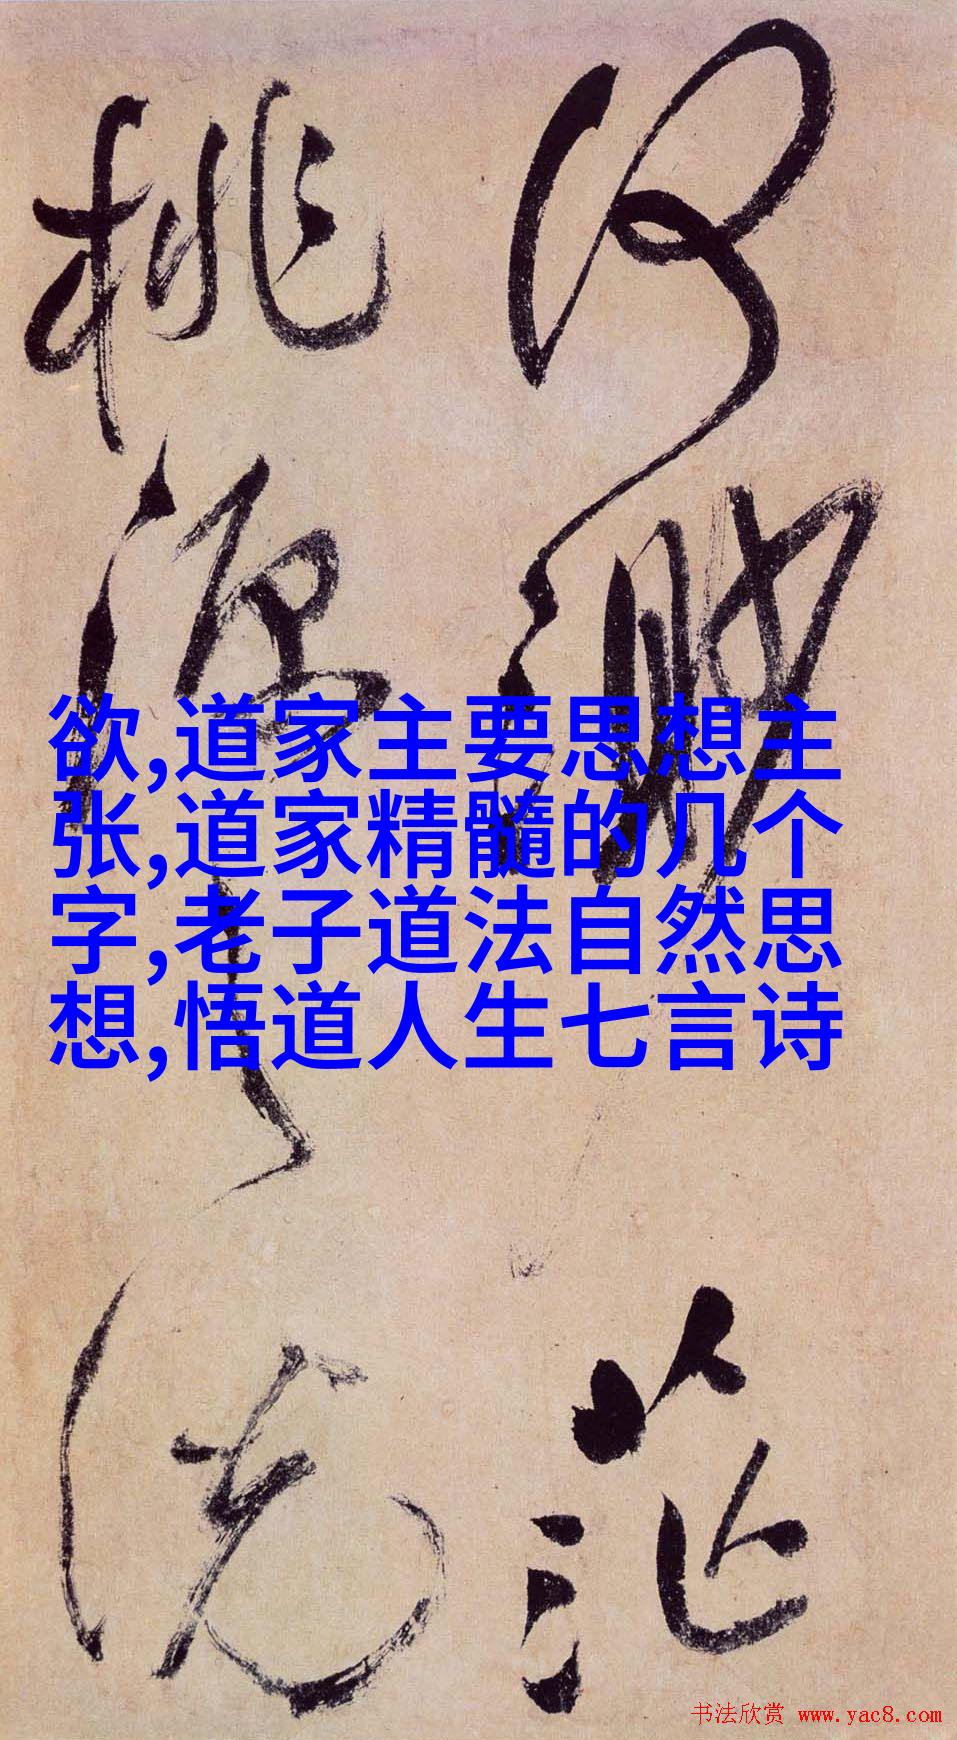 何渺茫
桃源之说
欲,道家主要思想主
张,道家精髓的几个
字,老子道法自然思
想,悟道人生七言诗
书法欣赏 www.yac8.com